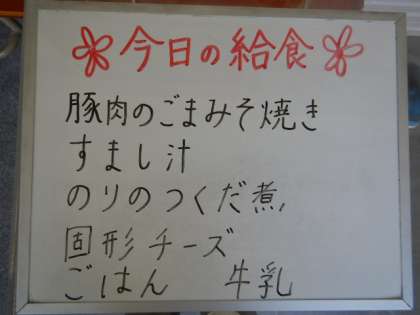 今日の給食
豚肉のごまみそ焼き
すまし汁
のりのつくだ煮
固形チーズ
ごはん 牛乳